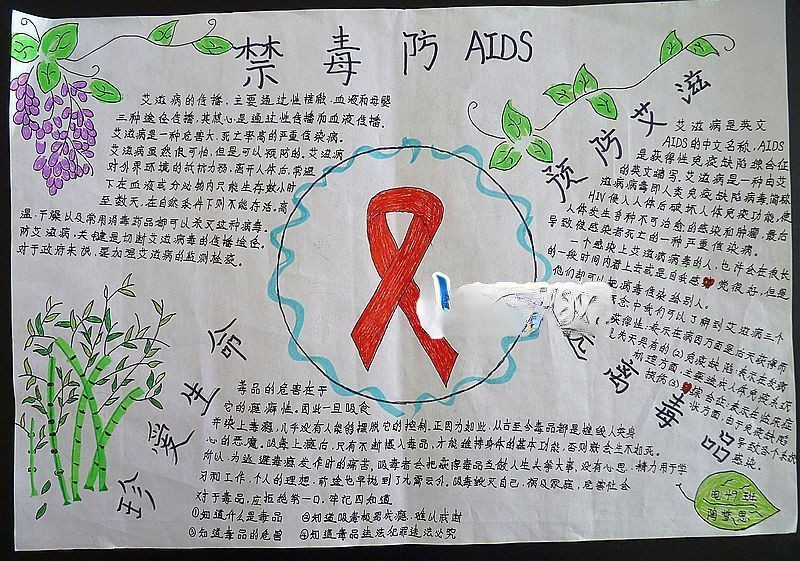 禁毒防 AIDS
艾滋病的传播，主要通过性接触，血液和母婴
三种途径传播，其核心是通过性传播和血液传播。
艾滋病是一种危害大、死亡率高的严重传染病。
艾滋病虽然很可怕，但是可以预防的。艾滋病
对外界环境的抵抗力弱，离开人体后，常温
下在血液或分泌物内只能生存数小时
至数天，在自然条件下则不能存活。高
温、干燥以及常用消毒药品都可以杀灭这种病毒。
防艾滋病，关键是切断艾滋病毒的传播途径。
对于政府来说，要加强艾滋病的监测检疫。
预防艾滋
艾滋病是英文
AIDS的中文名称，AIDS
是获得性免疫缺陷综合征
的英文缩写。艾滋病是一种由艾
滋病病毒即人类免疫缺陷病毒
HIV侵入人体后破坏人体免疫功能，使
人体发生多种不可治愈的感染和肿瘤，最后
导致被感染者死亡的一种严重传染病。
一个感染上艾滋病病毒的人，也许会在很长
的一段时间内看上去或是自我感觉很好，但是
他们却可以把病毒传染给别人。
念中我们可以了解到艾滋病三个
获得性：表示在病因方面是后天获得而
(2)免疫缺陷：表示在发病
珍爱生命
远离毒品
毒品的危害在于
它的瘾癖性，因此一旦吸食
并染上毒瘾，几乎没有人能够摆脱它的控制，正因为如此，从古至今毒品都是缠绕人类身
心的恶魔。吸毒上瘾后，只有不断摄入毒品，才能维持身体的基本功能，否则就会生不如死。
所以，为逃避毒瘾发作时的痛苦，吸毒者会把获得毒品当做人生头等大事，没有心思、精力用于学
习和工作，个人的理想、前途也早抛到了九霄云外。吸毒毁灭自己，祸及家庭，危害社会
对于毒品，应拒绝第一口，牢记四知道
①知道什么是毒品 ②知道吸毒极易成瘾，难以戒断
③知道毒品的危害 ④知道毒品违法犯罪违法必究